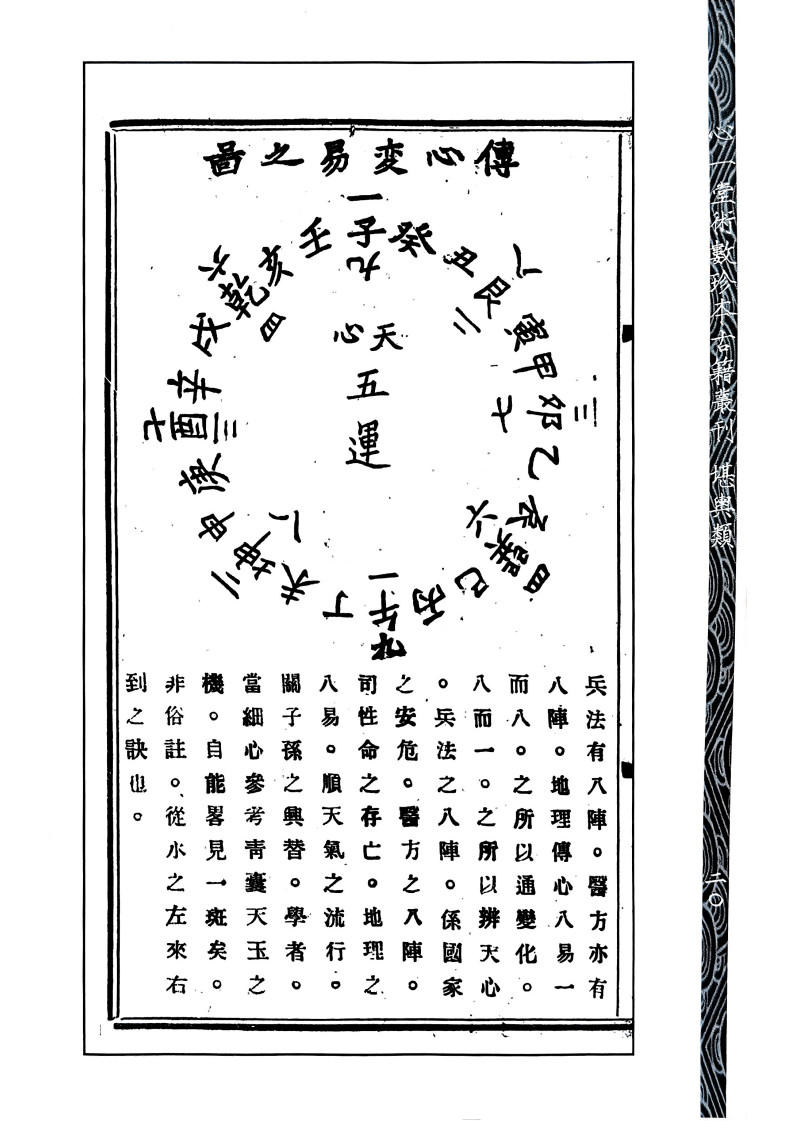 傳心変易之啚
一
壬子癸
九
八
丑艮寅
二
三
甲卯乙
七
六
辰巽巳
四
一
丙午丁
九
八
未坤申
二
三
庚酉辛
七
六
戌乾亥
四
天心
五
運
兵法有八陣。醫方亦有
八陣。地理傳心八易一
而八。之所以通變化。
八而一。之所以辨天心
。兵法之八陣。係國家
之安危。醫方之八陣。
司性命之存亡。地理之
八易。順天氣之流行。
關子孫之興替。學者。
當細心參考靑囊天玉之
機。自能畧見一斑矣。
非俗註。從水之左來右
到之訣也。
心一堂術數珍本古籍叢刊 堪輿類
二〇